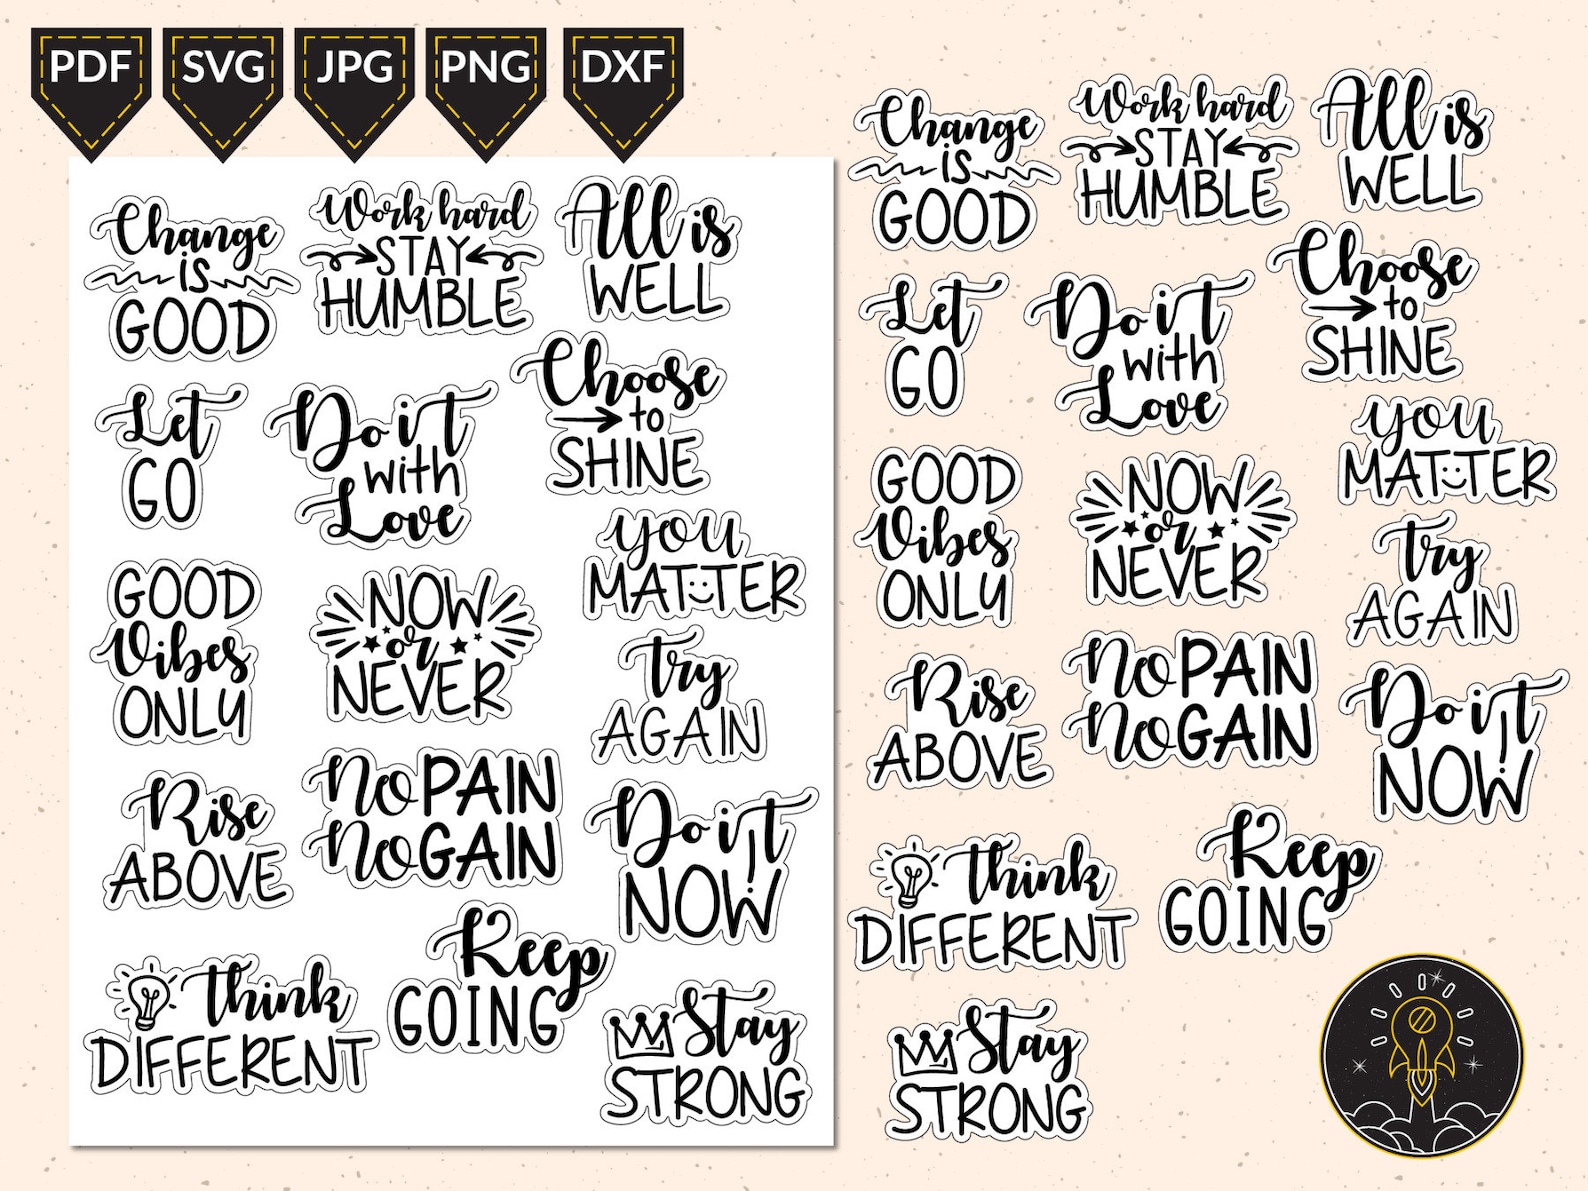 PDF
SVG
JPG
PNG
DXF
Change
is
GOOD
Work hard
STAY
HUMBLE
All is
WELL
Let
GO
Do it
with
Love
Choose
to
SHINE
GOOD
Vibes
ONLY
NOW
or
NEVER
you
MATTER
try
AGAIN
Rise
ABOVE
No PAIN
No GAIN
Do it
NOW
think
DIFFERENT
Keep
GOING
Stay
STRONG
Change
is
GOOD
Work hard
STAY
HUMBLE
All is
WELL
Let
GO
Do it
with
Love
Choose
to
SHINE
GOOD
Vibes
ONLY
NOW
or
NEVER
you
MATTER
try
AGAIN
Rise
ABOVE
No PAIN
No GAIN
Do it
NOW
think
DIFFERENT
Keep
GOING
Stay
STRONG